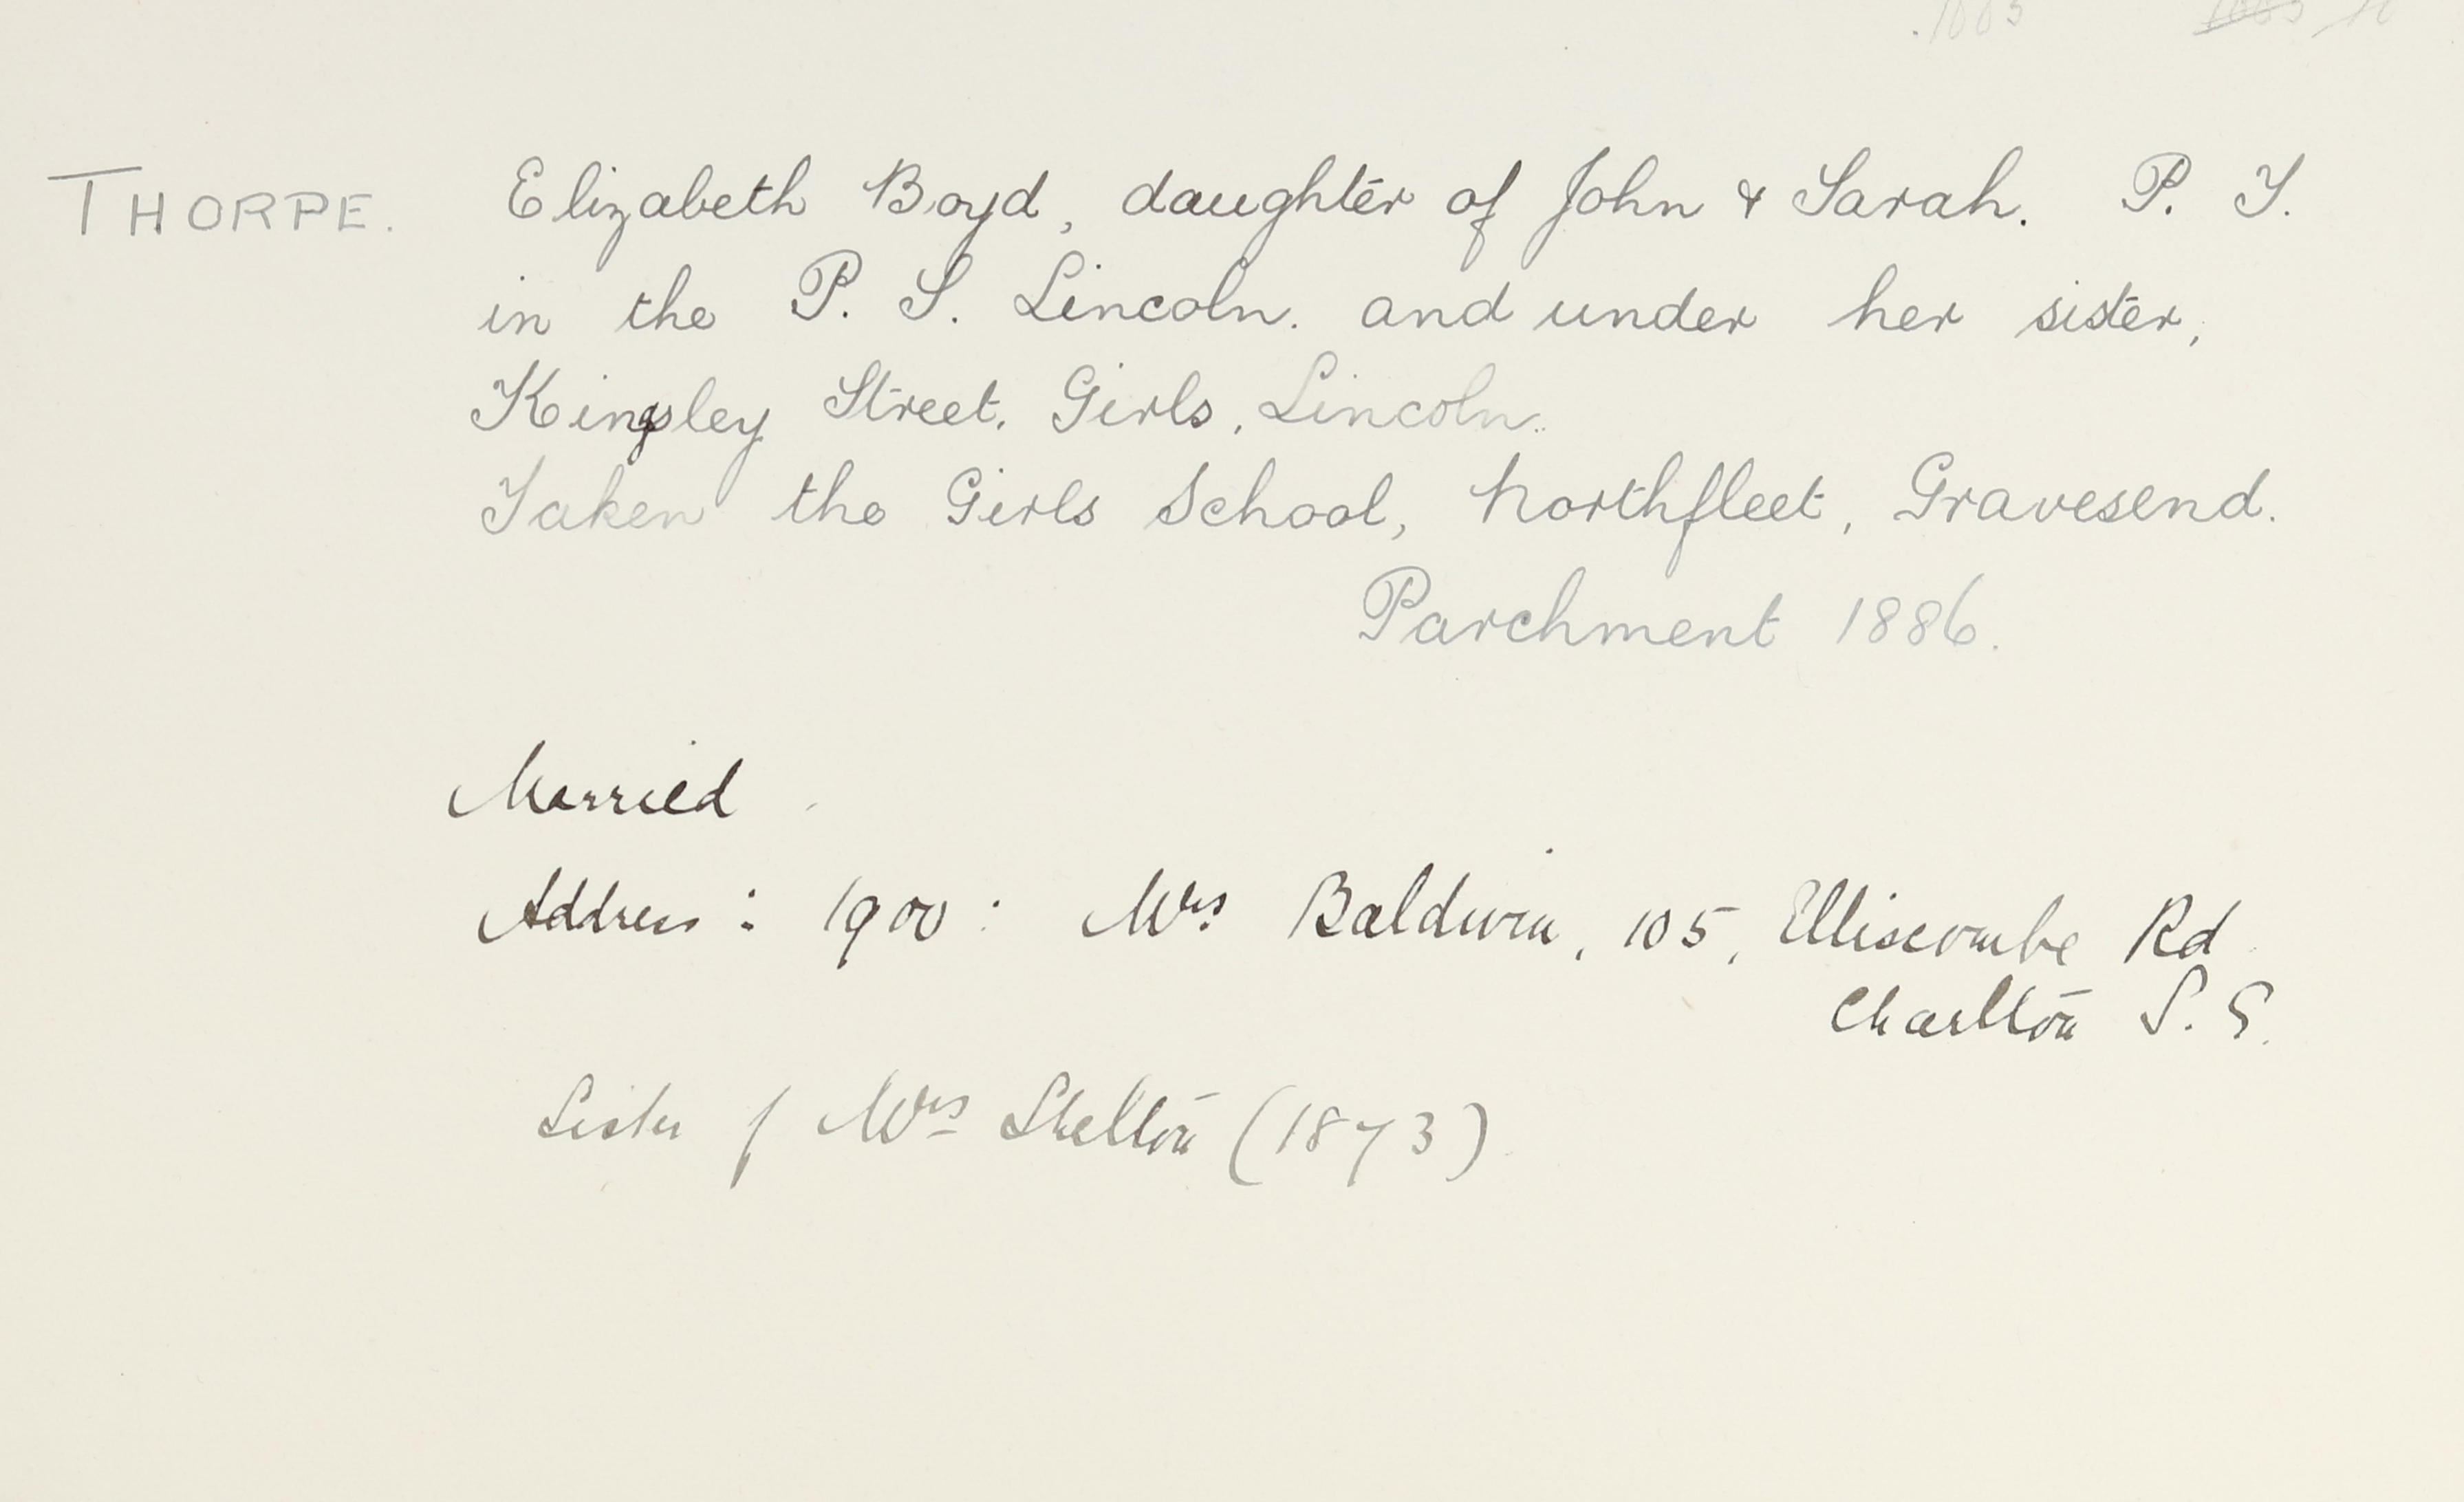 THORPE. Elizabeth Boyd, daughter of John & Sarah. P. T.
in the P. S. Lincoln. and under her sister,
Kingsley Street, Girls, Lincoln.
Taken the Girls School, Northfleet, Gravesend.
Parchment 1886.
Married
Address: 1900: Mrs Baldwin, 105, Elliscombe Rd
Charlton S. E.
Sister of Mrs Shelton (1873)